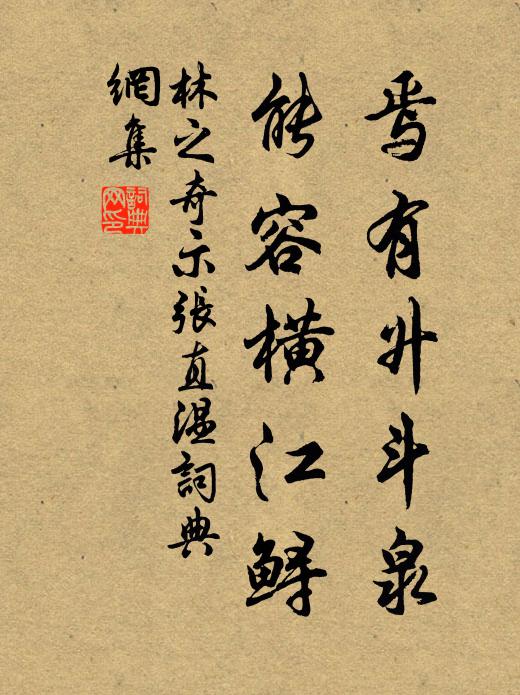 焉有升斗泉
能容横江鲟
林之奇示張直温詞典
網集
詞典網印